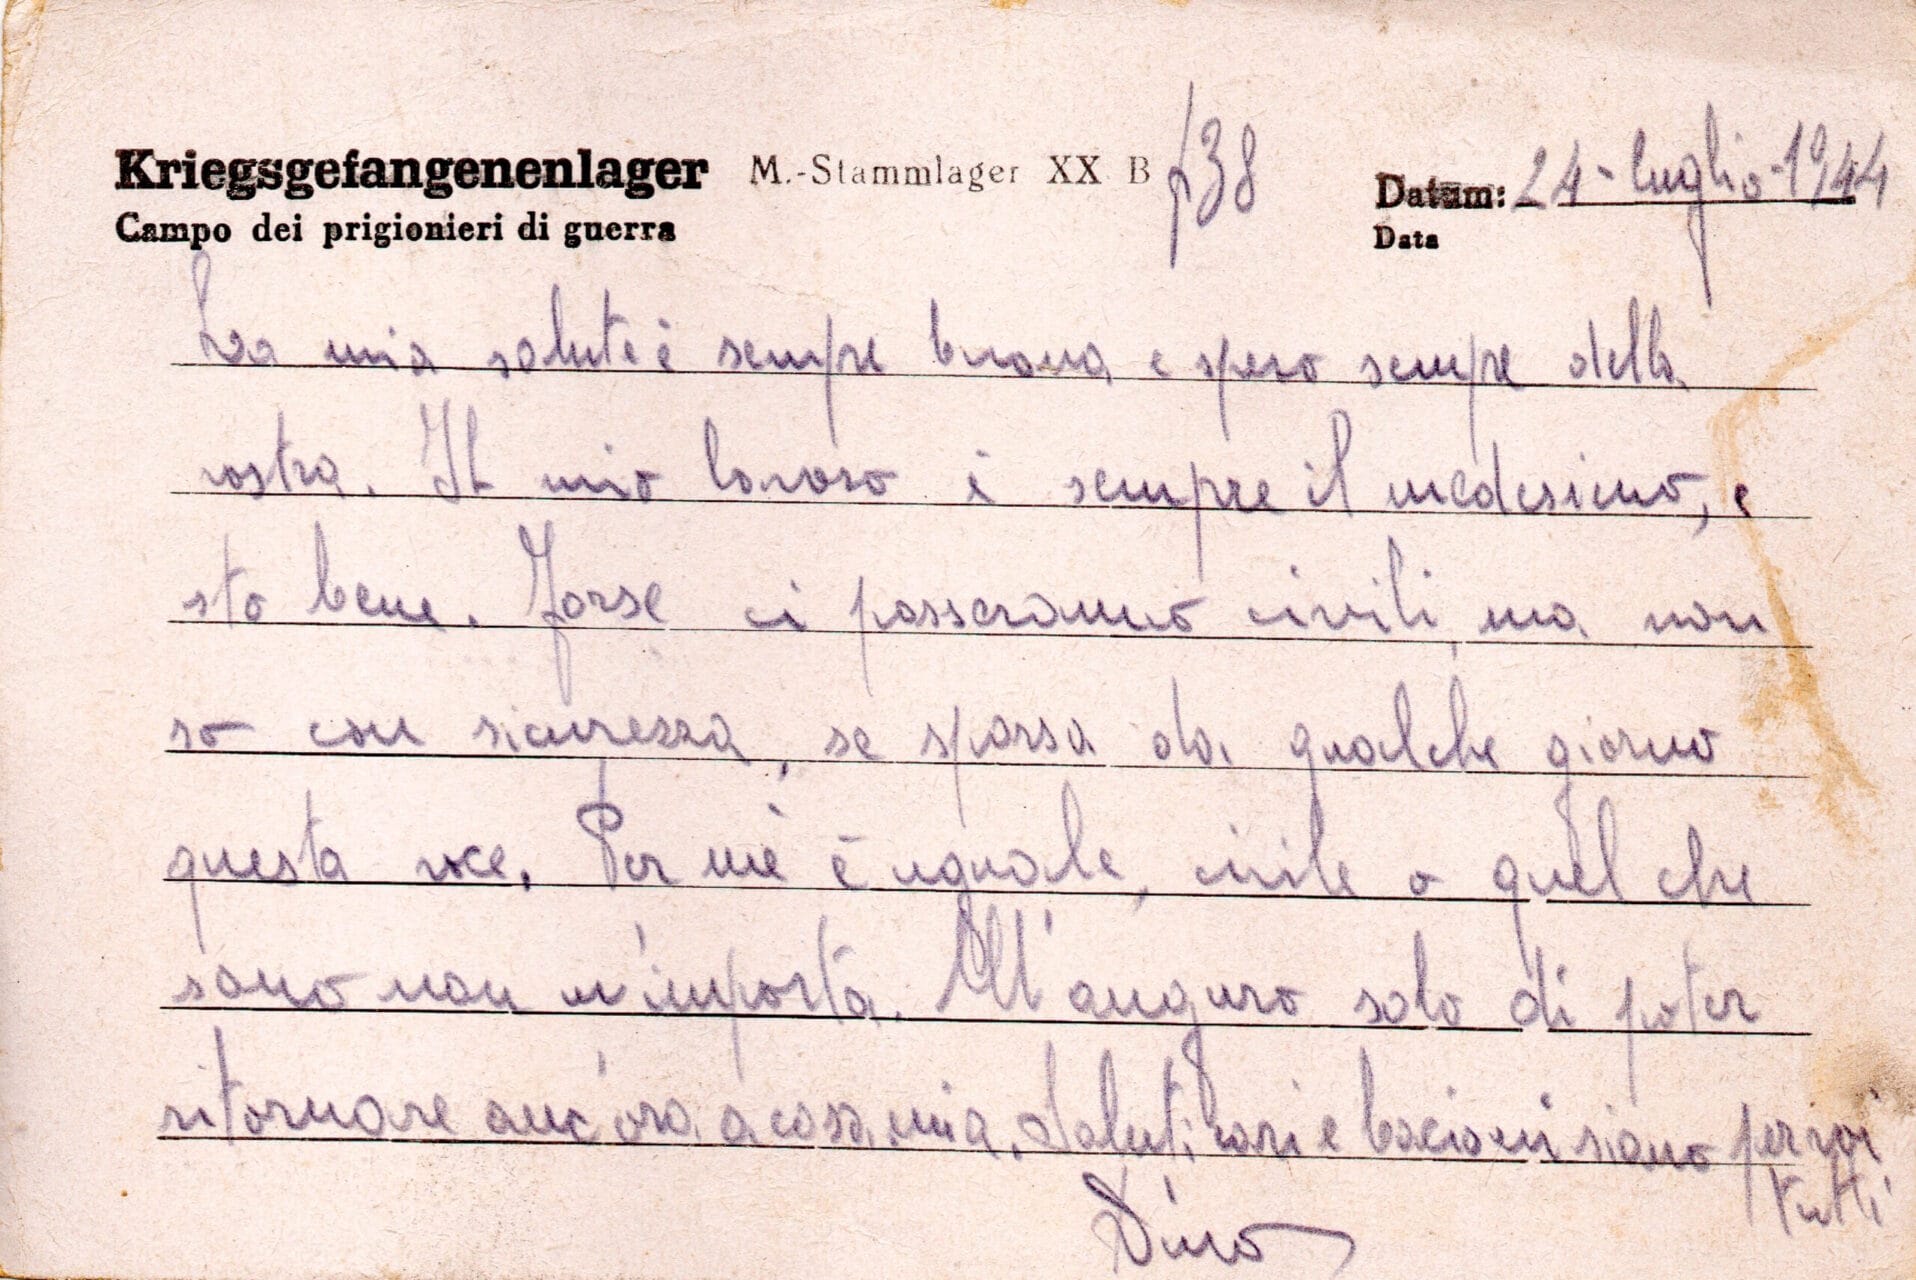 Kriegsgefangenenlager M.-Stammlager XX B 138
Datum: 24-luglio-1944
Campo dei prigionieri di guerra
Data
La mia salute è sempre buona e spero sempre della
vostra. Il mio lavoro è sempre il medesimo, e
sto bene. Forse ci passeranno civili, ma non
so con sicurezza, se sparsa da qualche giorno
questa voce. Per me è uguale, civile o quel che
sono non m'importa. M'auguro solo di poter
ritornare anc'ora a casa mia. Saluti cari e bacioni siano per voi
tutti
Dino